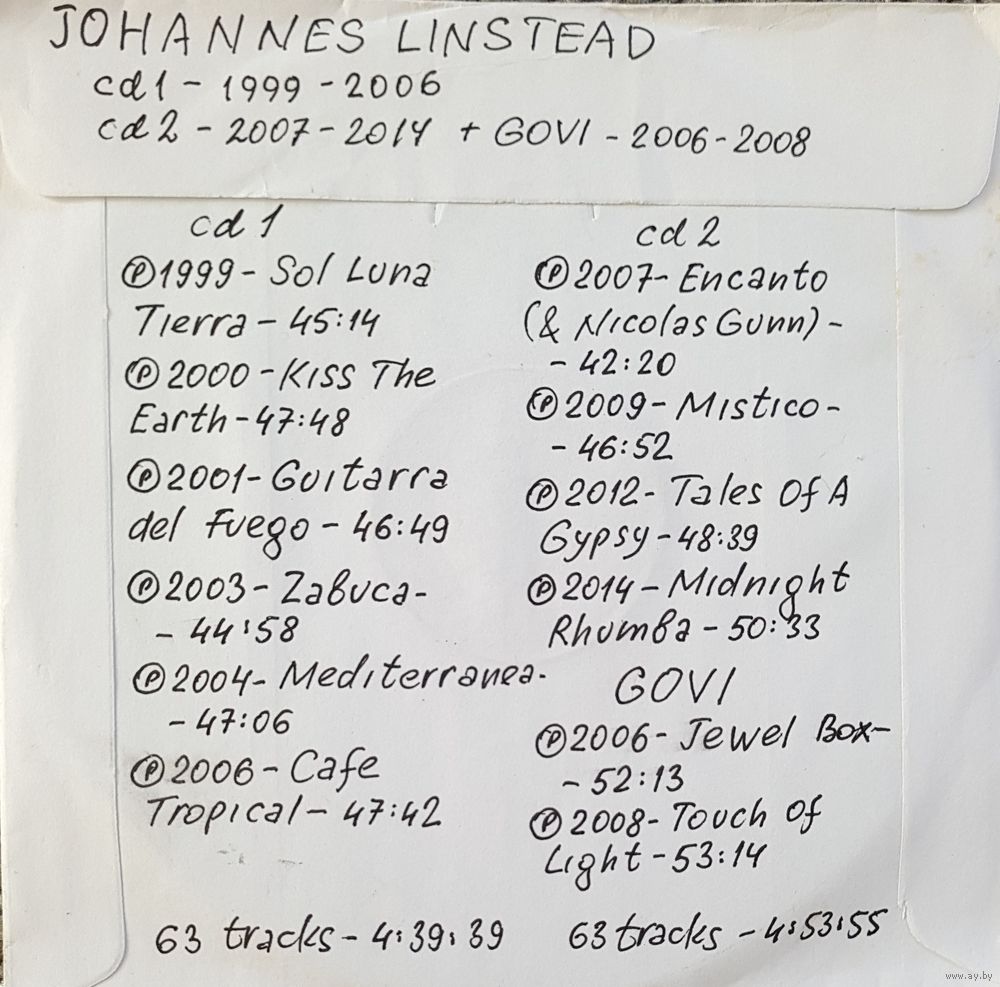 JOHANNES LINSTEAD
cd1 - 1999 - 2006
cd2 - 2007 - 2014 + GOVI - 2006-2008
cd 1
℗1999- Sol Luna
Tierra - 45:14
℗2000 - Kiss The
Earth - 47:48
℗2001- Guitarra
del Fuego - 46:49
℗2003- Zabuca-
- 44:58
℗2004- Mediterranea-
- 47:06
℗2006- Cafe
Tropical - 47:42
63 tracks - 4:39:39
cd 2
℗2007- Encanto
(& Nicolas Gunn) -
- 42:20
℗2009- Mistico-
- 46:52
℗2012- Tales Of A
Gypsy - 48:39
℗2014 - Midnight
Rhumba - 50:33
GOVI
℗2006- Jewel Box-
- 52:13
℗2008- Touch Of
Light - 53:14
63 tracks - 4:53:55
www.ay.by